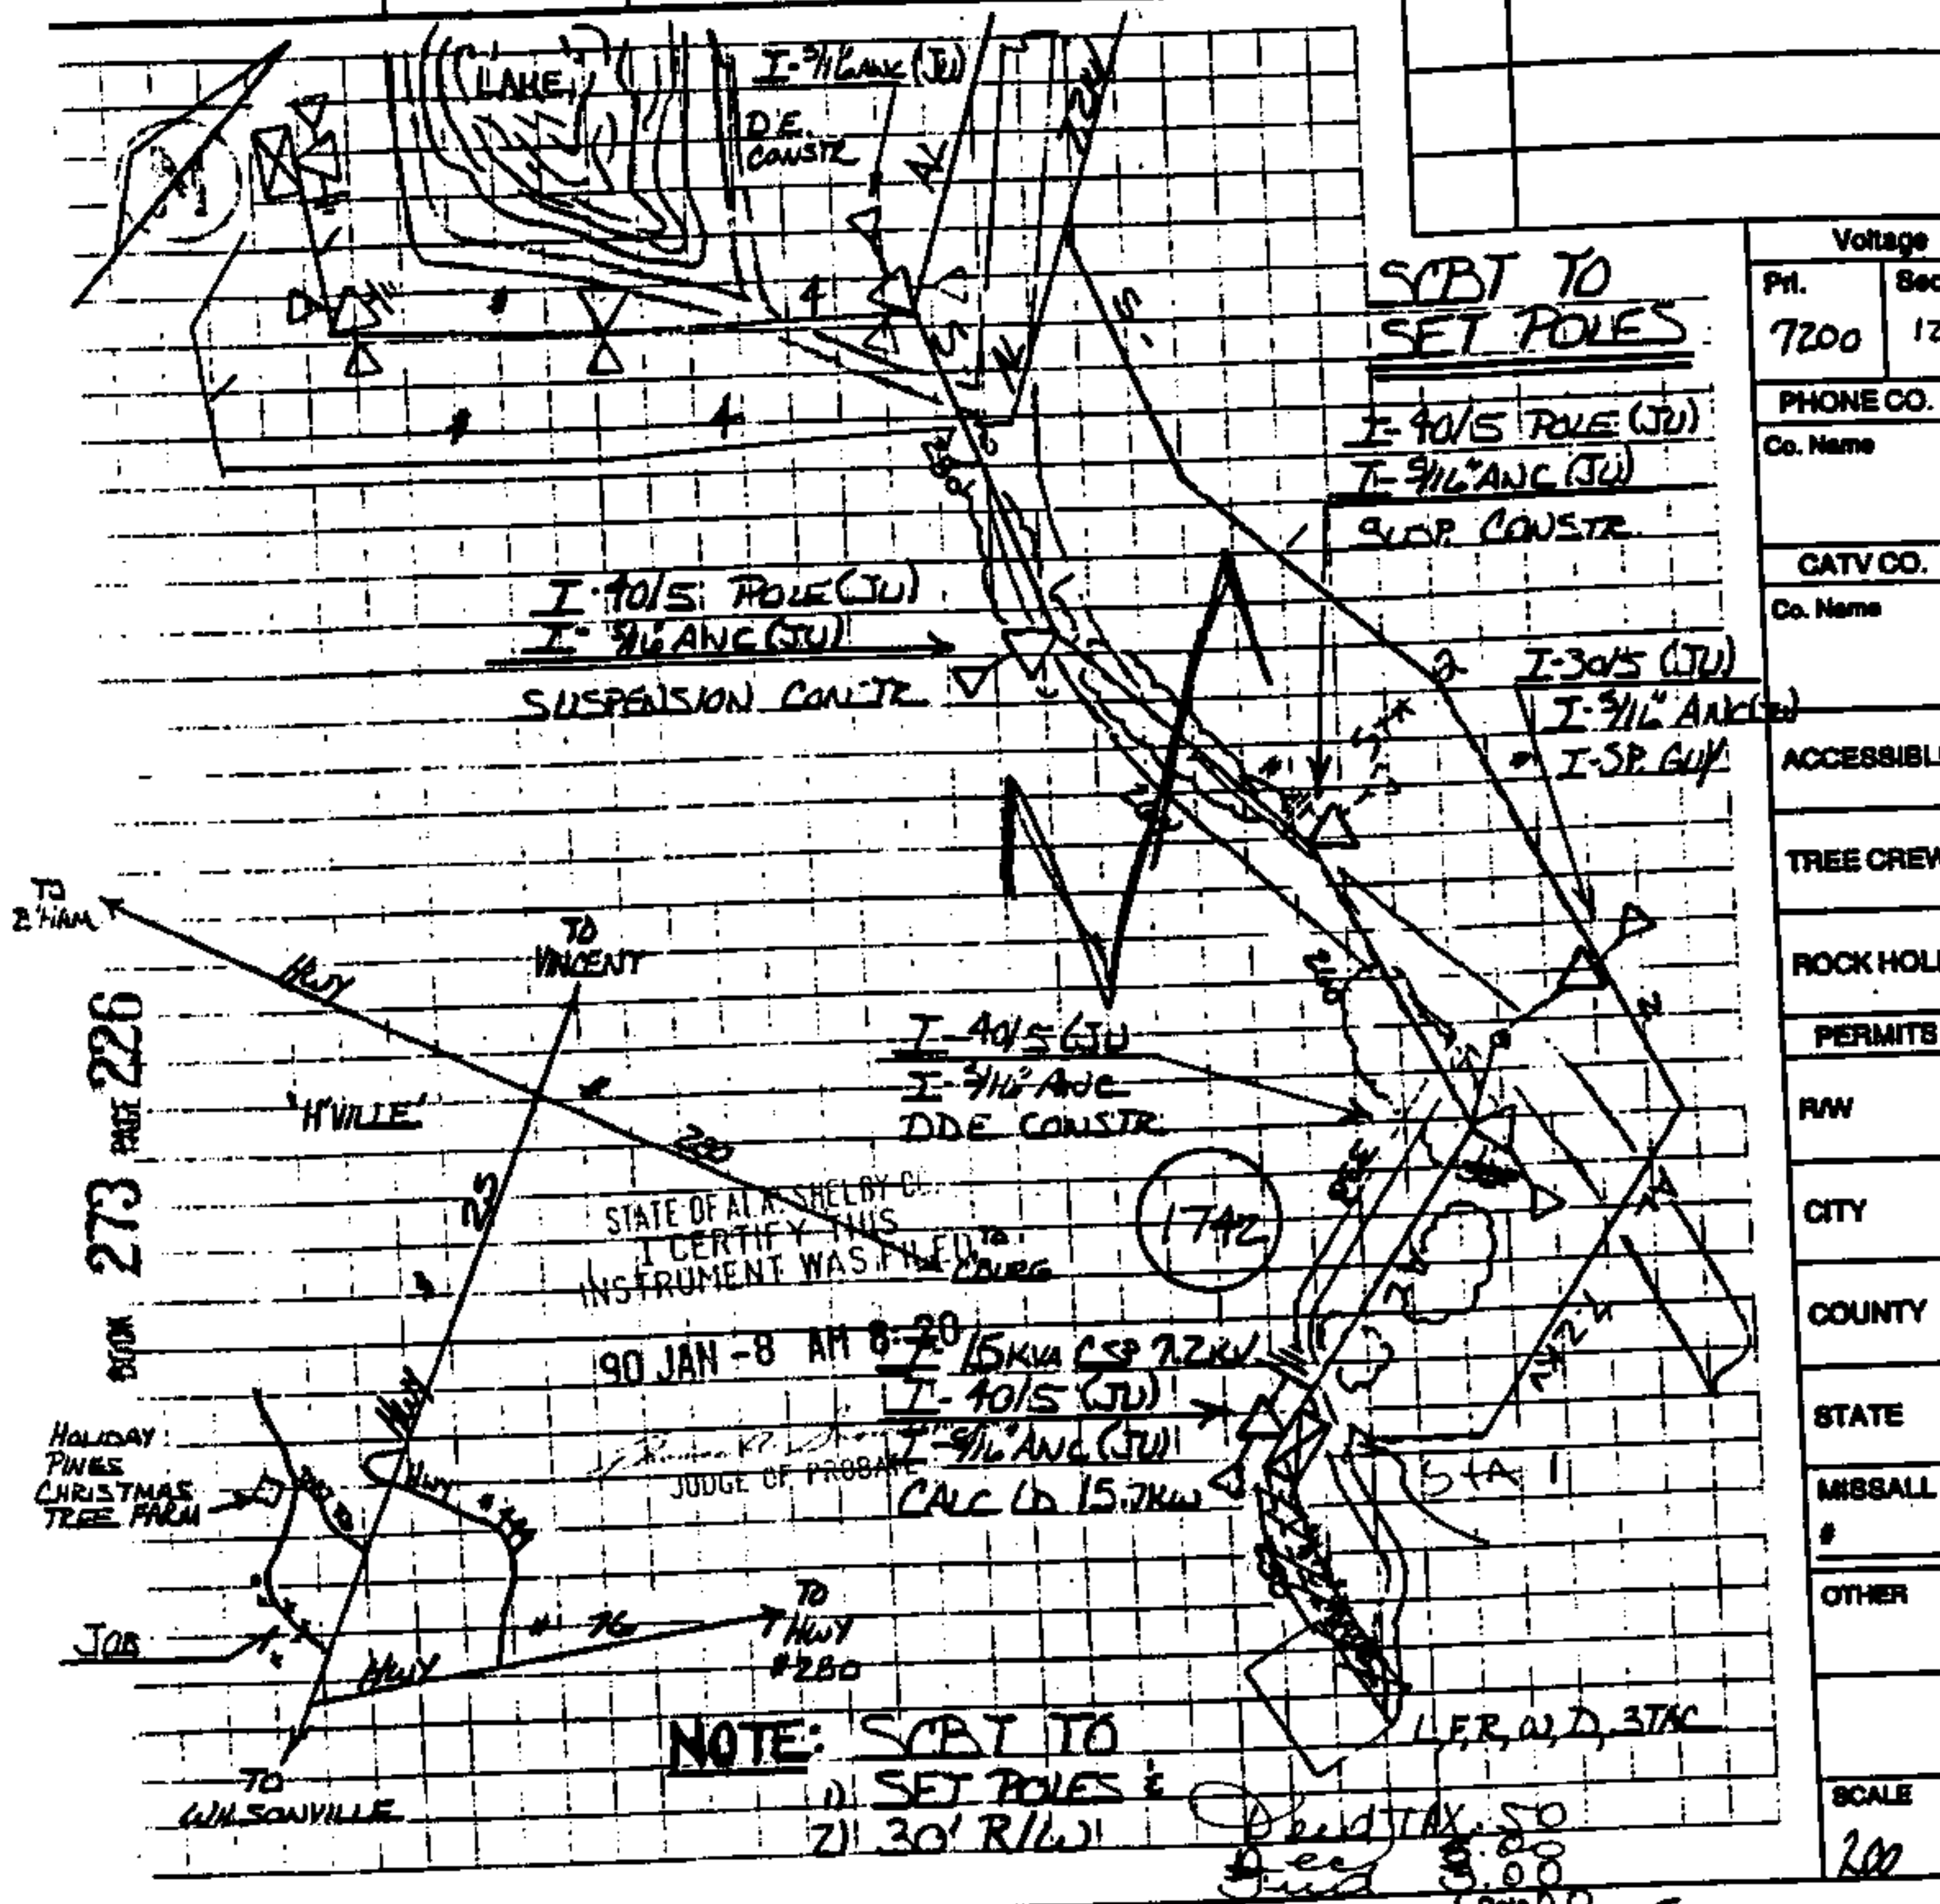 (LAKE)
I-5/16" ANC (JU)
D.E.
CONSTR
SCBT TO
SET POLES
I-40/5 POLE (JU)
I-5/16" ANC (JU)
SUSP. CONSTR.
I-40/5 POLE (JU)
I-5/16" ANC (JU)
SUSPENSION CONSTR
I-30/5 (JU)
I-5/16" ANC (JU)
I-SP. GUY
TO
B'HAM
HWY
TO
VINCENT
I-40/5 (JU)
I-5/16" ANC
DDE CONSTR.
'H'VILLE'
280
25
TO
C'BURG
STATE OF ALA. SHELBY CO.
I CERTIFY THIS
INSTRUMENT WAS FILED
1742
90 JAN -8 AM 8:20
I 15KVA CSP 7.2KV
I-40/5 (JU)
I-5/16" ANC (JU)
CALC LD 15.7KW
JUDGE OF PROBATE
STA 1
HWY
HOLIDAY
PINES
CHRISTMAS
TREE FARM
HWY
JOB
HWY
# 76
TO
HWY
#280
TO
WILSONVILLE
NOTE: SCBT TO
1) SET POLES &
2) 30' R/W
L, F, R, W, D, 3TAC
Deed TAX .50
5.00
3.00
BOOK 273 PAGE 226
Voltage
Pri.
7200
Sec
12
PHONE CO.
Co. Name
CATV CO.
Co. Name
ACCESSIBL
TREE CREW
ROCK HOL
PERMITS
R/W
CITY
COUNTY
STATE
MISSALL
#
OTHER
SCALE
200